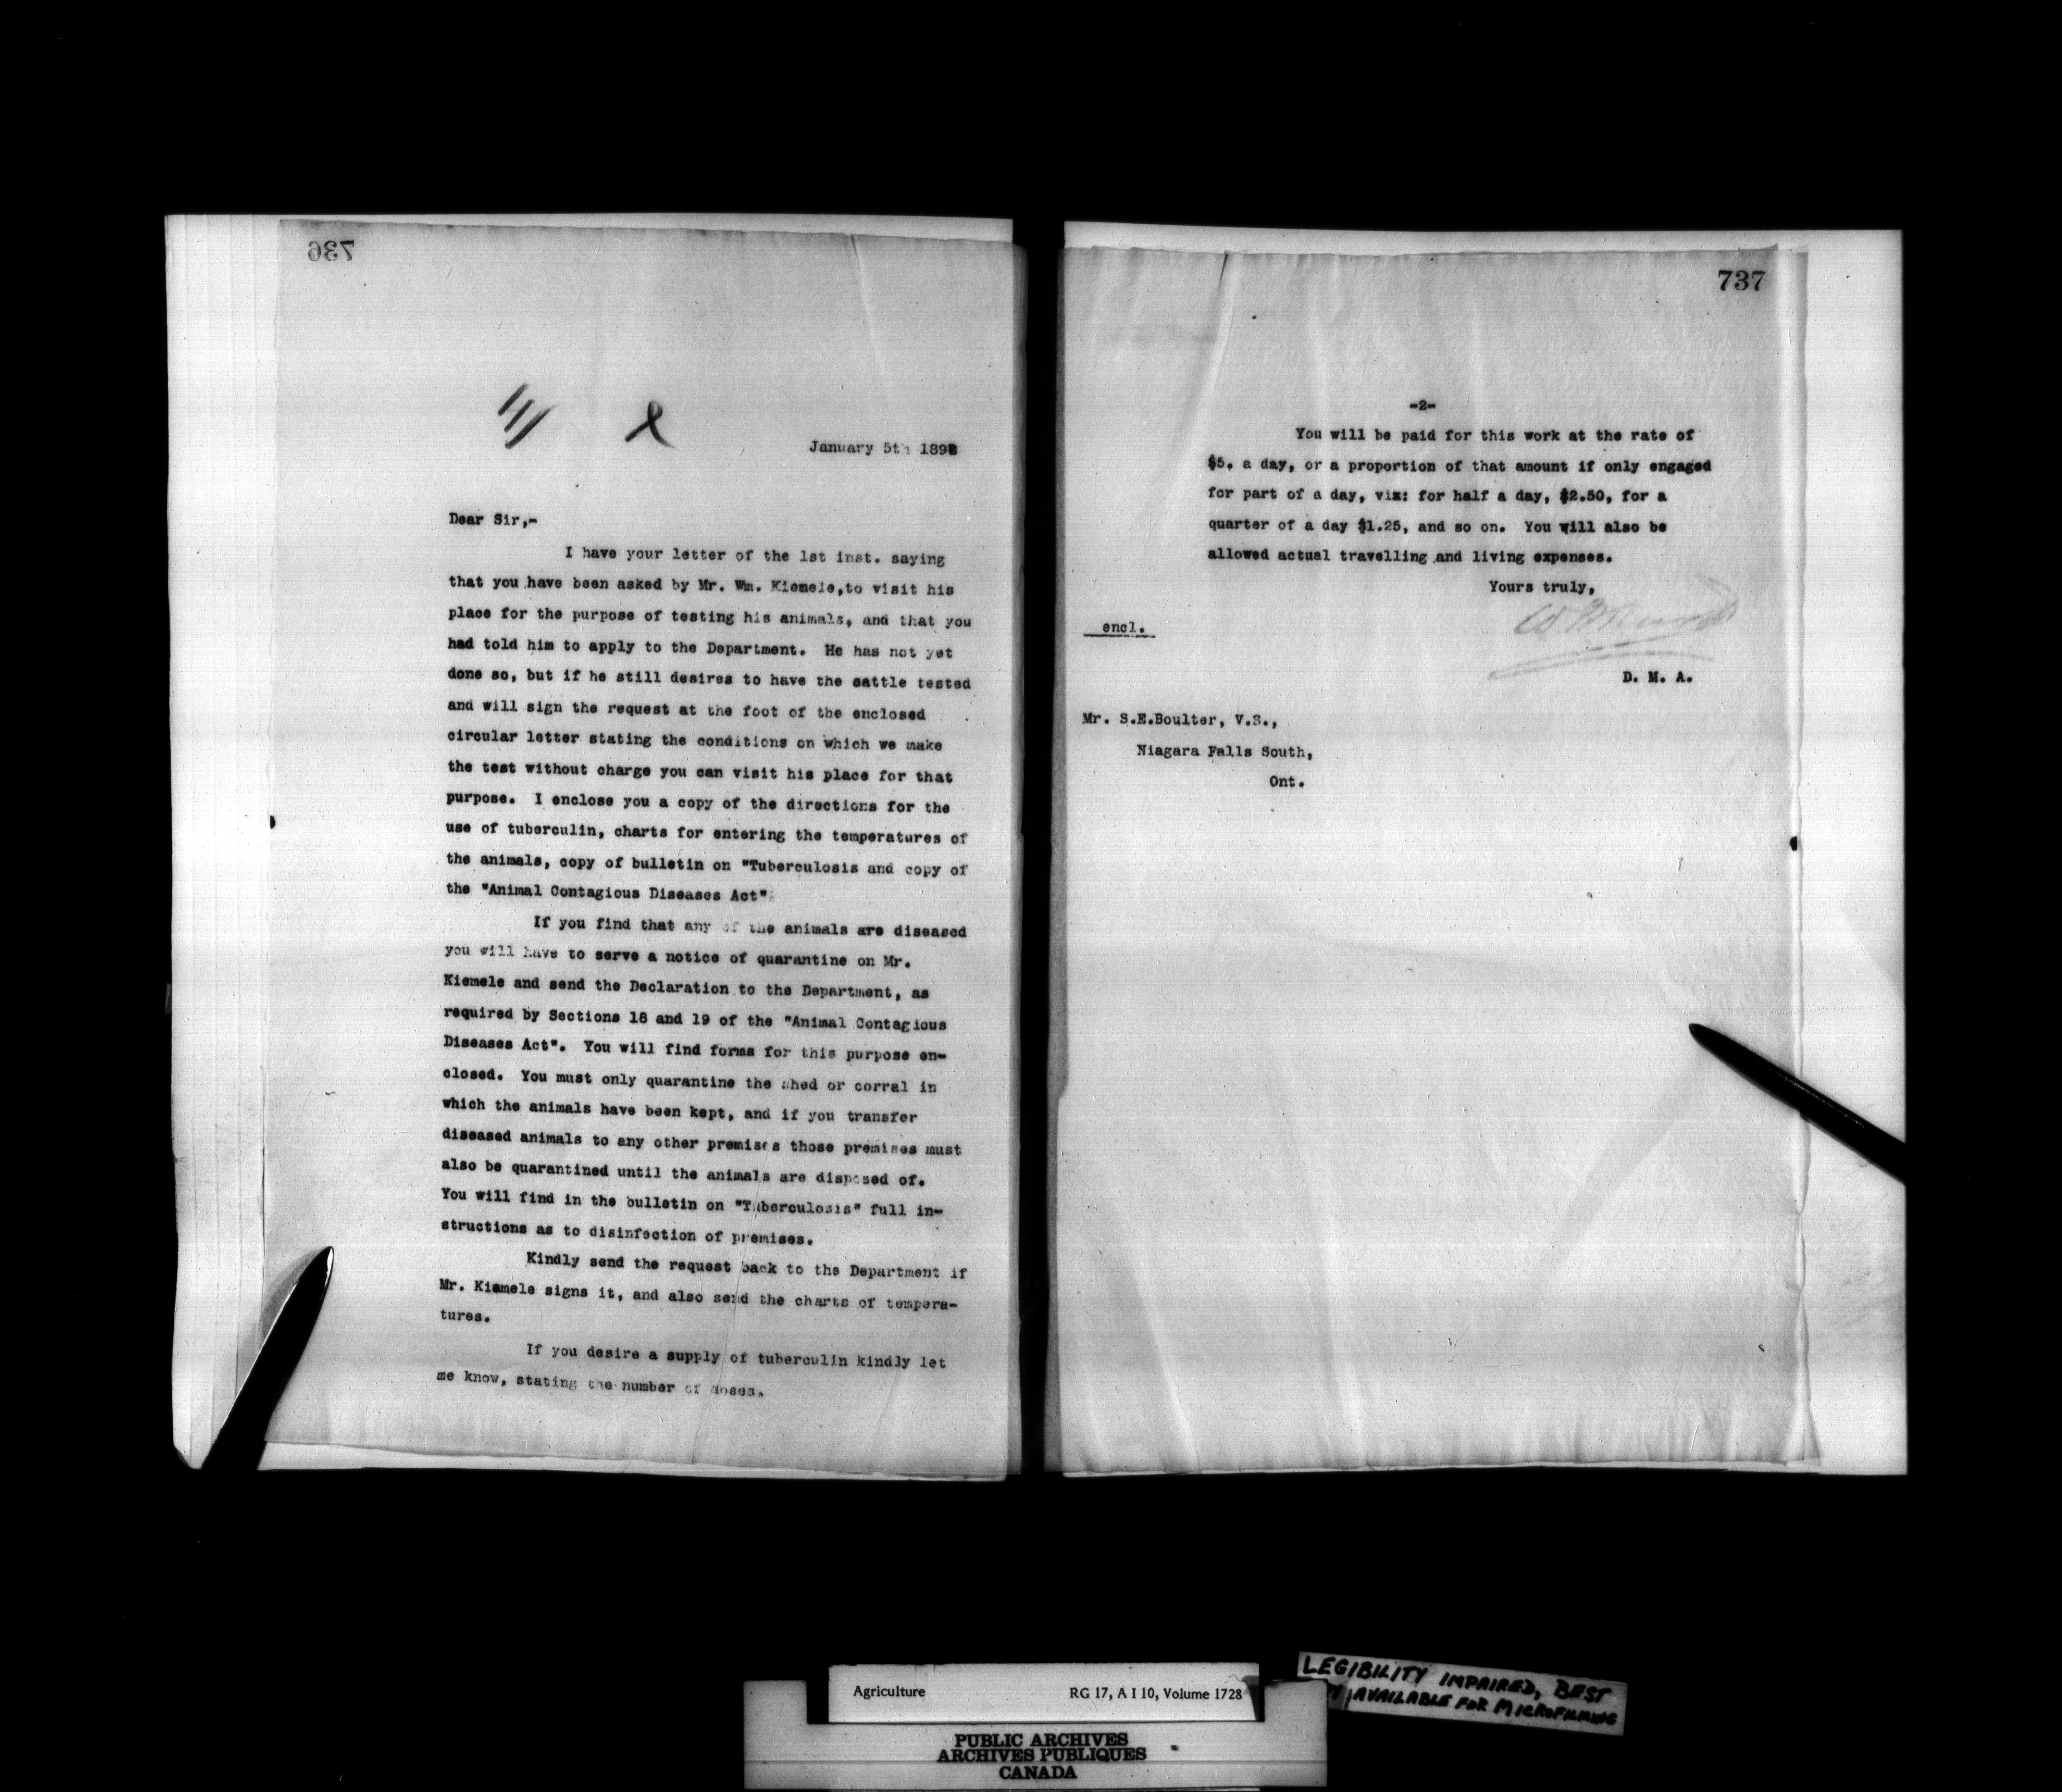 736
January 5th 1898
Dear Sir,-
I have your letter of the 1st inst. saying
that you have been asked by Mr. Wm. Kiemele,to visit his
place for the purpose of testing his animals, and that you
had told him to apply to the Department. He has not yet
done so, but if he still desires to have the cattle tested
and will sign the request at the foot of the enclosed
circular letter stating the conditions on which we make
the test without charge you can visit his place for that
purpose. I enclose you a copy of the directions for the
use of tuberculin, charts for entering the temperatures of
the animals, copy of bulletin on "Tuberculosis and copy of
the "Animal Contagious Diseases Act"
If you find that any of the animals are diseased
you will have to serve a notice of quarantine on Mr.
Kiemele and send the Declaration to the Department, as
required by Sections 18 and 19 of the "Animal Contagious
Diseases Act". You will find forms for this purpose en-
closed. You must only quarantine the shed or corral in
which the animals have been kept, and if you transfer
diseased animals to any other premises those premises must
also be quarantined until the animals are disposed of.
You will find in the bulletin on "Tuberculosis" full in-
structions as to disinfection of premises.
Kindly send the request back to the Department if
Mr. Kiemele signs it, and also send the charts of tempera-
tures.
If you desire a supply of tuberculin kindly let
me know, stating the number of doses.
737
-2-
You will be paid for this work at the rate of
$5. a day, or a proportion of that amount if only engaged
for part of a day, viz: for half a day, $2.50, for a
quarter of a day $1.25, and so on. You will also be
allowed actual travelling and living expenses.
Yours truly,
encl.
D. M. A.
Mr. S.E.Boulter, V.S.,
Niagara Falls South,
Ont.
Agriculture RG 17, A I 10, Volume 1728
LEGIBILITY IMPAIRED, BEST
AVAILABLE FOR MICROFILMING
PUBLIC ARCHIVES
ARCHIVES PUBLIQUES
CANADA